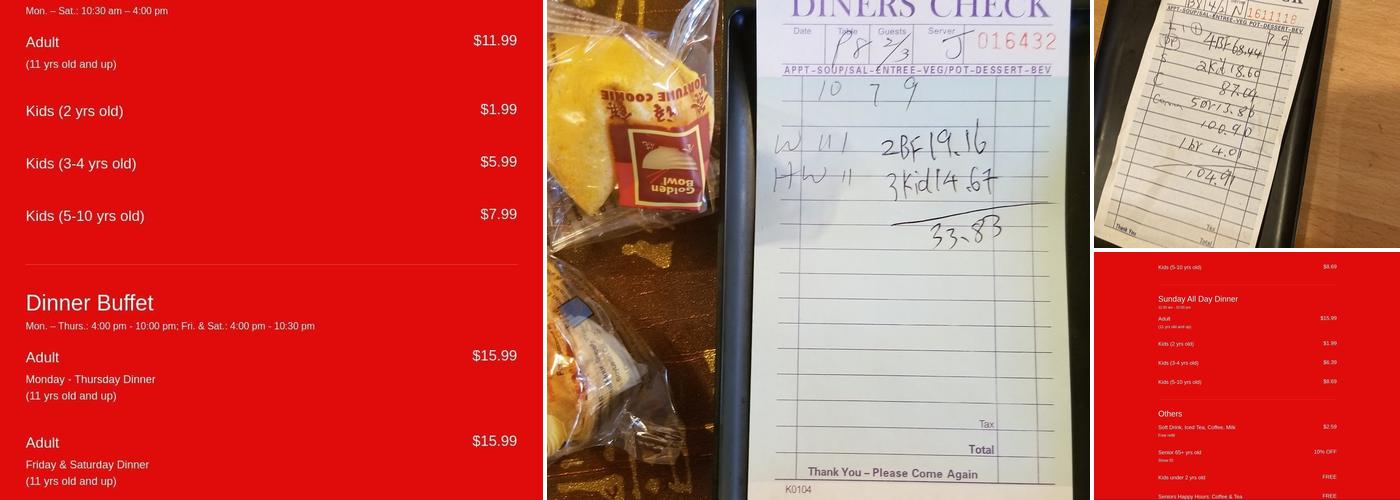 Mon. – Sat.: 10:30 am – 4:00 pm
Adult $11.99
(11 yrs old and up)
Kids (2 yrs old) $1.99
Kids (3-4 yrs old) $5.99
Kids (5-10 yrs old) $7.99
Dinner Buffet
Mon. – Thurs.: 4:00 pm - 10:00 pm; Fri. & Sat.: 4:00 pm - 10:30 pm
Adult $15.99
Monday - Thursday Dinner
(11 yrs old and up)
Adult $15.99
Friday & Saturday Dinner
(11 yrs old and up)
FORTUNE COOKIE
Golden
Bowl
DINERS CHECK
Date Table Guests Server
P8 2/3 J 016432
APPT-SOUP/SAL-ENTREE-VEG/POT-DESSERT-BEV
10 7 9
W 2BF 19.16
HW 11 3Kid 14.67
33.83
Tax
Total
Thank You – Please Come Again
K0104
1611118
APPT-SOUP/SAL-ENTREE-VEG/POT-DESSERT-BEV
4BF 68.44
2Kid 18.60
87.04
13.86
100.90
4.01
104.91
Tax
Total
Thank You
Kids (5-10 yrs old) $8.69
Sunday All Day Dinner
Adult $15.99
(11 yrs old and up)
Kids (2 yrs old) $1.99
Kids (3-4 yrs old) $6.39
Kids (5-10 yrs old) $8.69
Others
Soft Drink, Iced Tea, Coffee, Milk $2.59
Free refill
Senior 65+ yrs old 10% OFF
Show ID
Kids under 2 yrs old FREE
Seniors Happy Hours: Coffee & Tea FREE